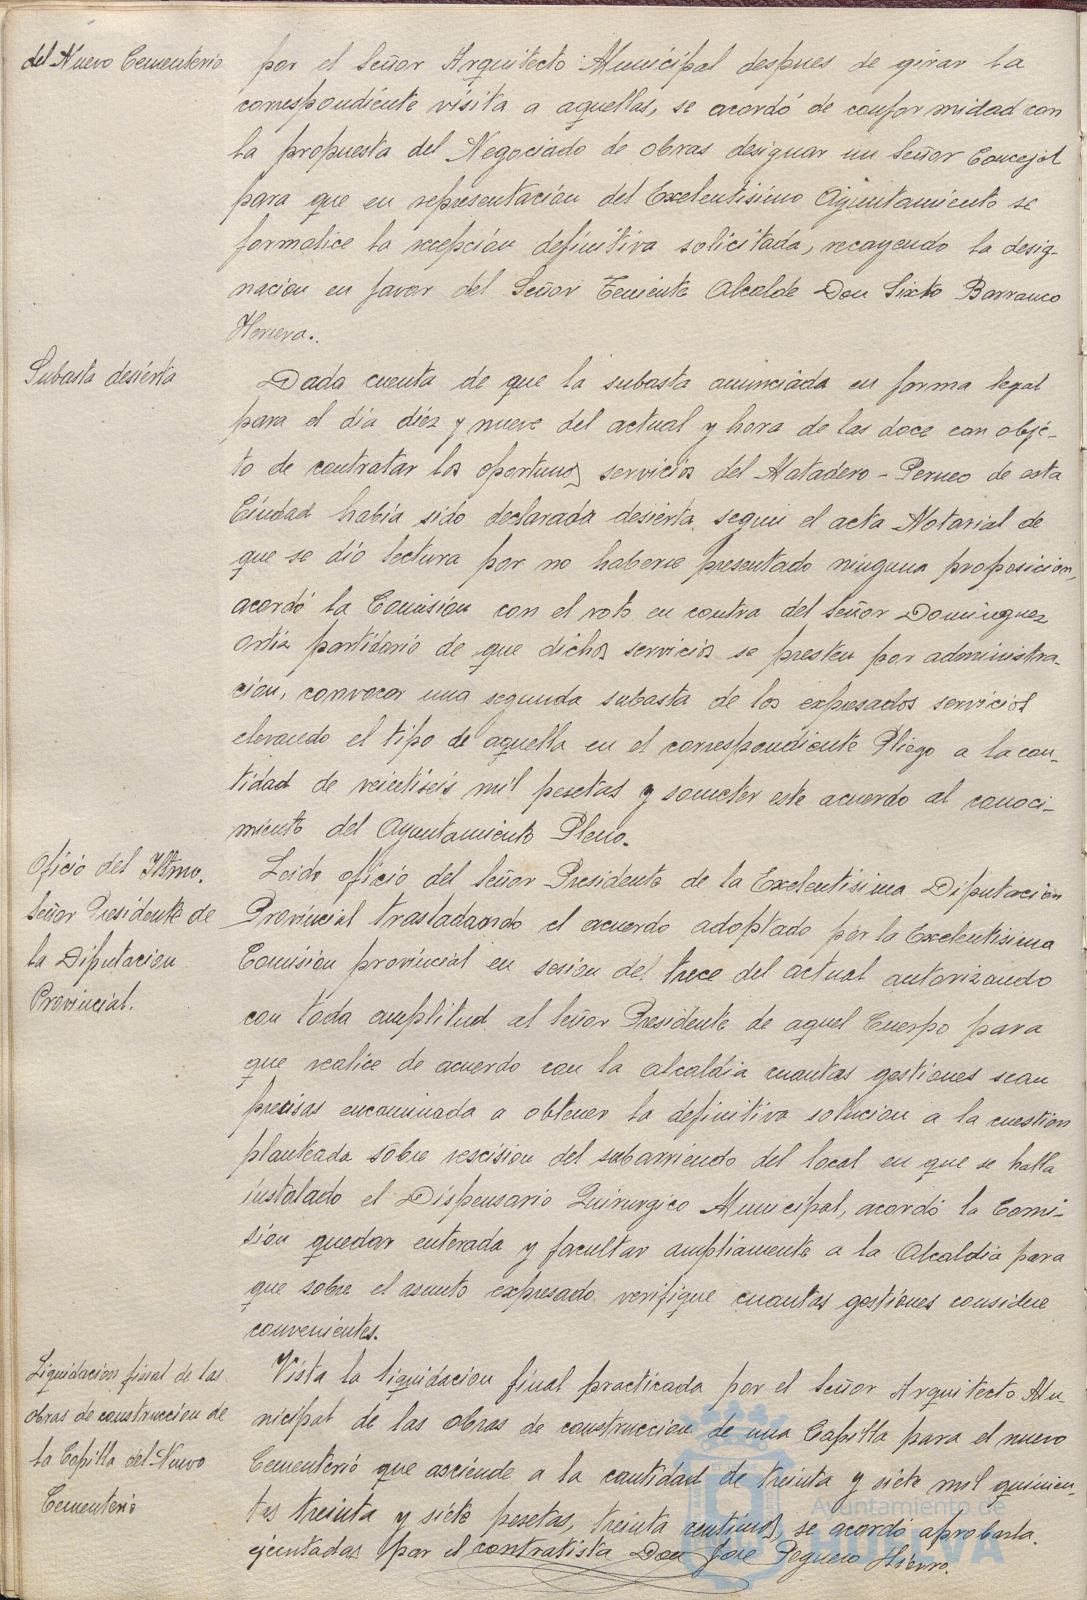 del Nuevo Cementerio
por el Señor Arquitecto Municipal despues de girar la
correspondiente visita a aquellas, se acordó de conformidad con
la propuesta del Negociado de obras designar un Señor Concejal
para que en representacion del Excelentisimo Ayuntamiento se
formalice la recepción definitiva solicitada, recayendo la desig-
nacion en favor del Señor Teniente Alcalde Don Sixto Barranco
Herrera.
Subasta desierta
Dada cuenta de que la subasta anunciada en forma legal
para el día diez y nueve del actual y hora de las doce con obje-
to de contratar los oportunos servicios del Matadero-Perneo de esta
Ciudad había sido declarada desierta, segun el acta Notarial de
que se dió lectura por no haberse presentado ninguna proposicion,
acordó la Comision con el voto en contra del Señor Dominguez
Ortiz partidario de que dichos servicios se presten por administra-
cion, convocar una segunda subasta de los expresados servicios
elevando el tipo de aquella en el correspondiente Pliego a la can-
tidad de veintiseis mil pesetas y someter este acuerdo al conoci-
miento del Ayuntamiento Pleno.
Oficio del Iltmo.
Señor Presidente de
la Diputacion
Provincial.
Leido oficio del Señor Presidente de la Excelentisima Diputacion
Provincial trasladando el acuerdo adoptado por la Excelentisima
Comision provincial en sesion del trece del actual autorizando
con toda amplitud al Señor Presidente de aquel Cuerpo para
que realice de acuerdo con la alcaldia cuantas gestiones sean
precisas encaminada a obtener la definitiva solucion a la cuestion
planteada sobre rescision del subarriendo del local en que se halla
instalado el Dispensario Quirurgico Municipal, acordó la Comi-
sion quedar enterada y facultar ampliamente a la Alcaldia para
que sobre el asunto expresado verifique cuantas gestiones considere
convenientes.
Liquidacion final de las
obras de construccion de
la Capilla del Nuevo
Cementerio
Vista la liquidacion final practicada por el Señor Arquitecto Mu-
nicipal de las obras de construccion de una Capilla para el nuevo
Cementerio que asciende a la cantidad de treinta y siete mil quinien-
tas treinta y siete pesetas, treinta centimos, se acordó aprobarla.
ejecutadas por el contratista Don Jose Peguero Hierro.
Ayuntamiento de
HUELVA